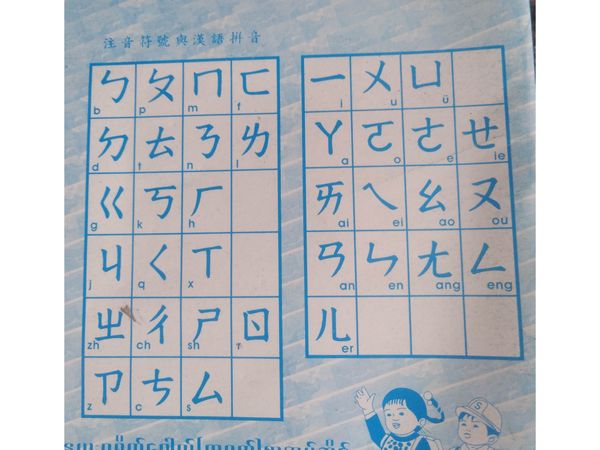 注音符號與漢語拼音
ㄅ b ㄆ p ㄇ m ㄈ f
ㄉ d ㄊ t ㄋ n ㄌ l
ㄍ g ㄎ k ㄏ h
ㄐ j ㄑ q ㄒ x
ㄓ zh ㄔ ch ㄕ sh ㄖ r
ㄗ z ㄘ c ㄙ s
ㄧ i ㄨ u ㄩ ü
ㄚ a ㄛ o ㄜ e ㄝ ie
ㄞ ai ㄟ ei ㄠ ao ㄡ ou
ㄢ an ㄣ en ㄤ ang ㄥ eng
ㄦ er
S